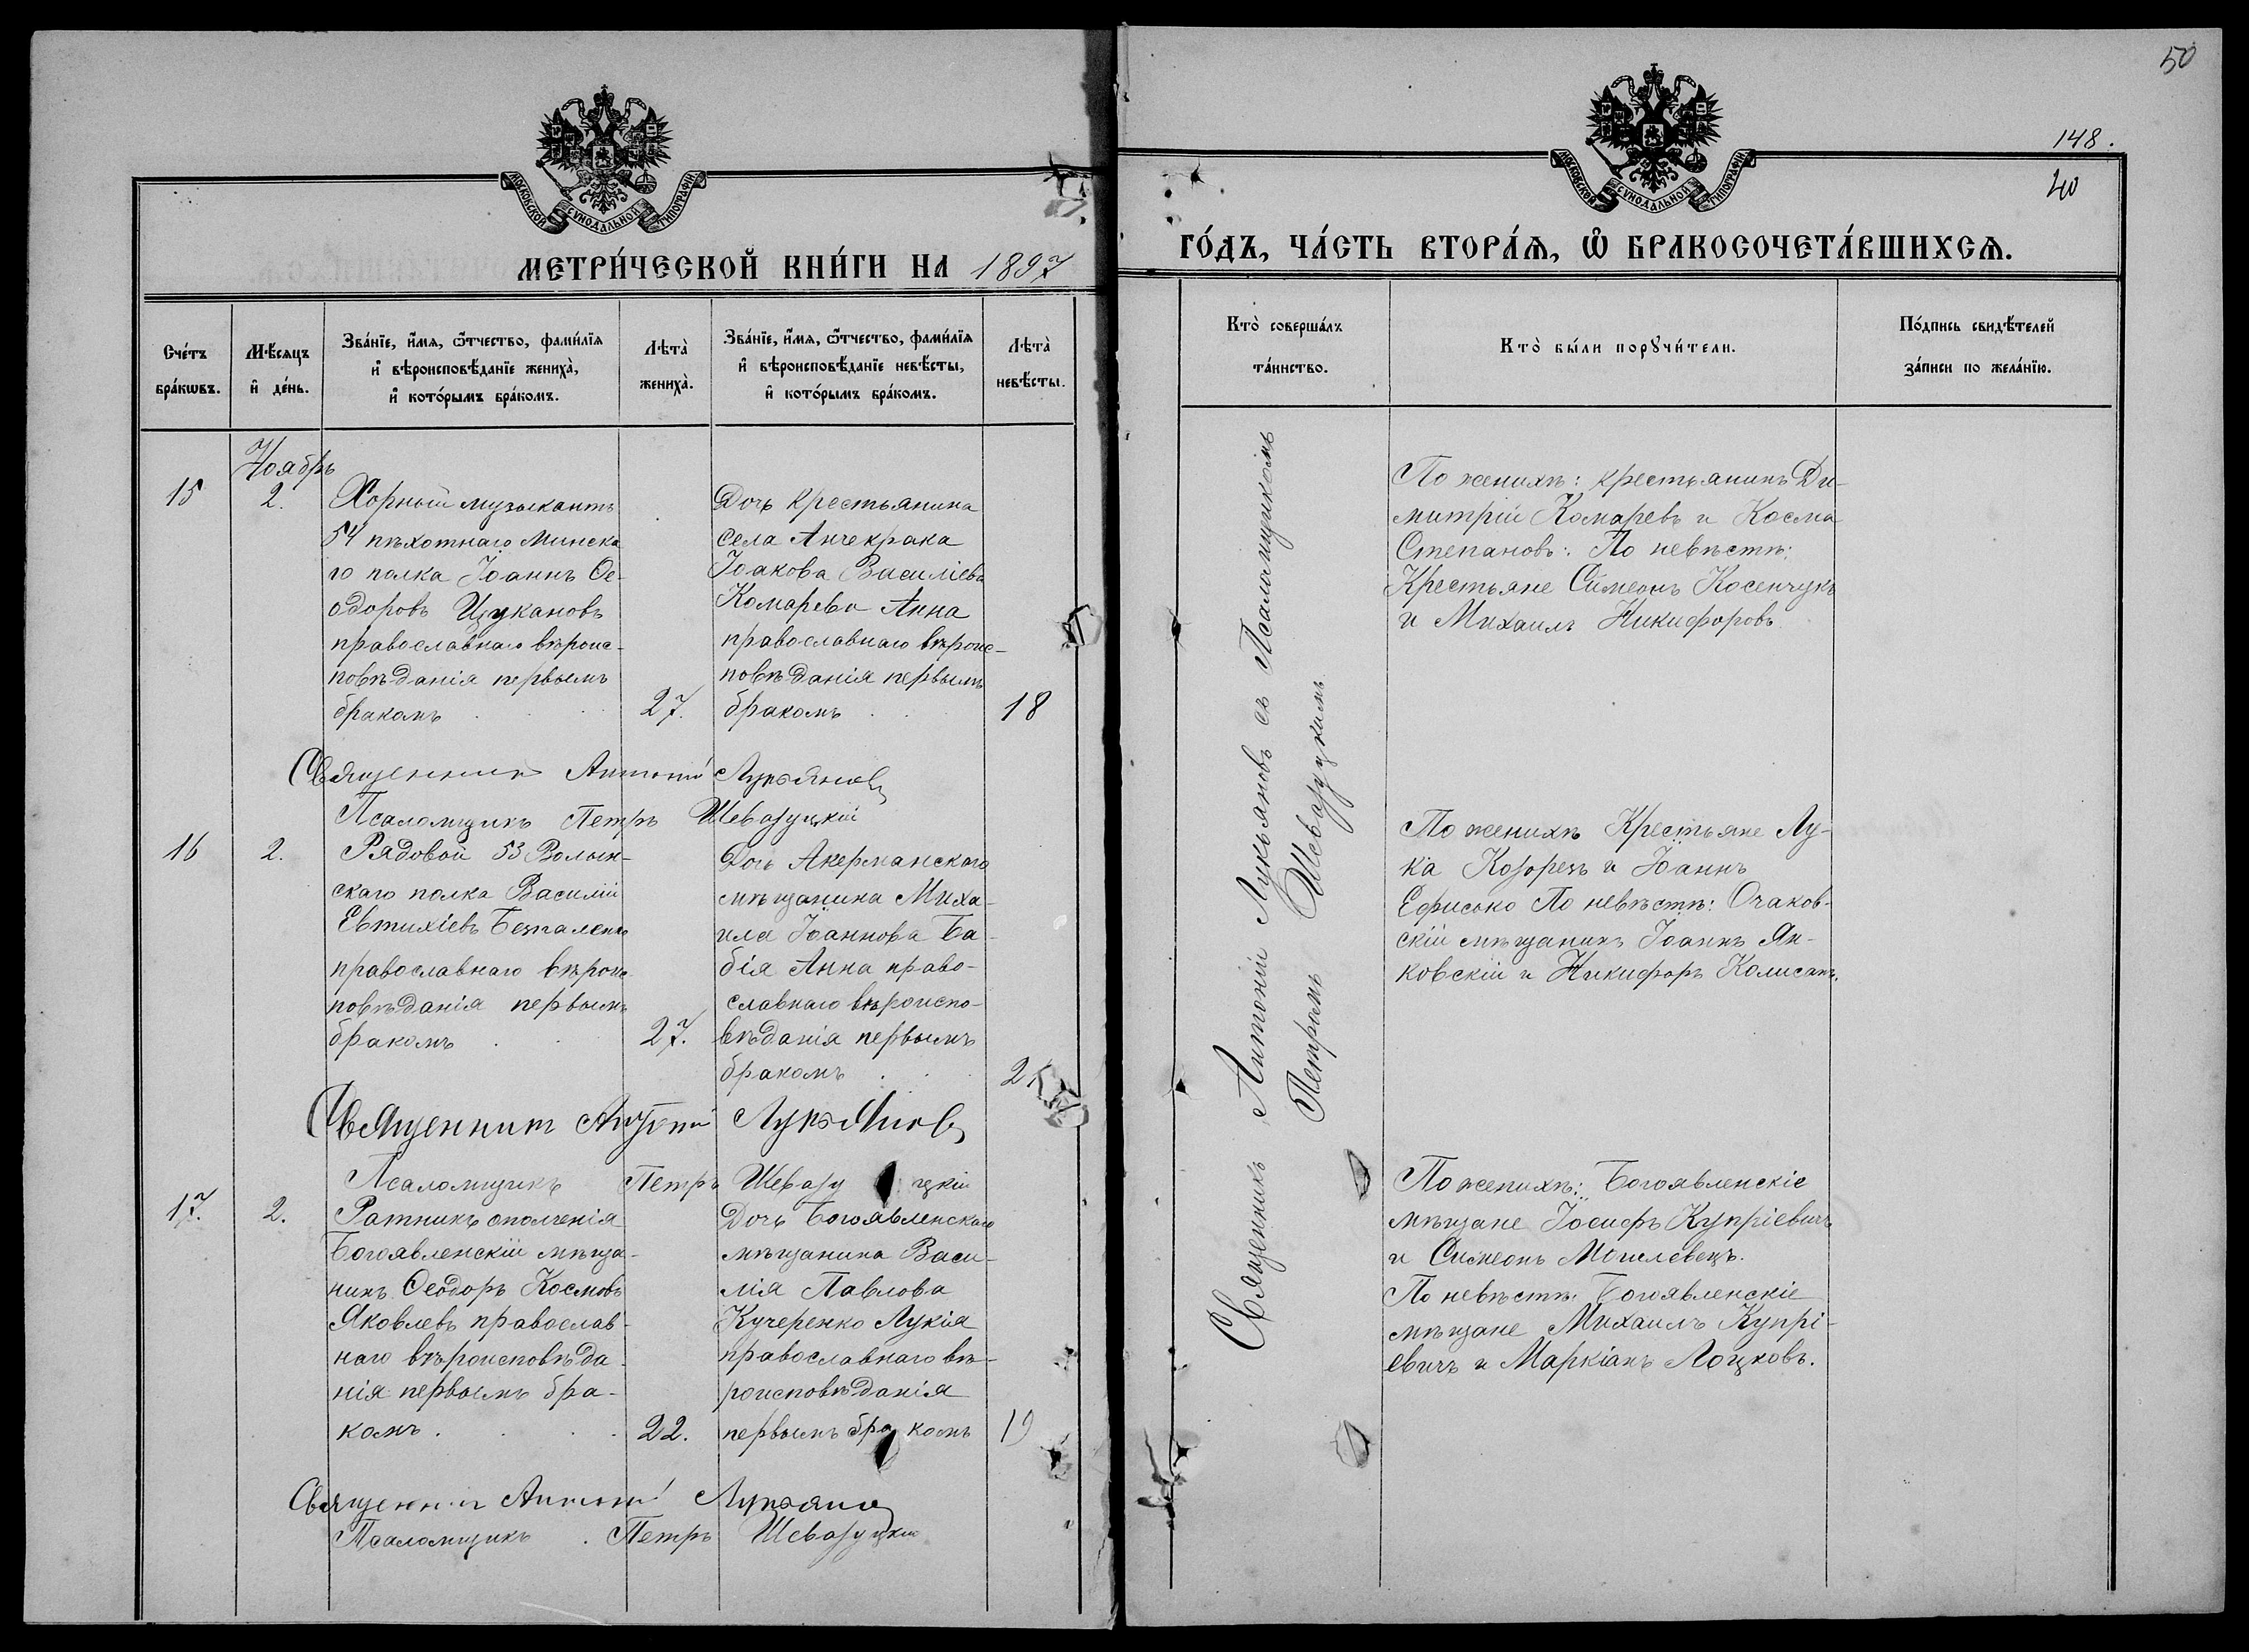 50
148.
40
МОСКОВСКОЙ СѴНОДАЛЬНОЙ ТИПОГРАФІИ
МОСКОВСКОЙ СѴНОДАЛЬНОЙ ТИПОГРАФІИ
МЕТРИ́ЧЕСКОЙ КНИ́ГИ НА 1897
ГО́ДЪ, ЧА́СТЬ ВТОРА́Ѧ, Ѽ БРАКОСОЧЕТА́ВШИХСѦ.
Сче́тъ
бра́кѡвъ.
Мѣ́сяцъ
и҆ де́нь.
Зва́нїе, и҆́мѧ, ѻ҆́тчество, фами́лїѧ
и҆ вѣроисповѣ́данїе жениха̀,
и҆ кото́рымъ бра́комъ.
Лѣта̀
жениха̀.
Зва́нїе, и҆́мѧ, ѻ҆́тчество, фами́лїѧ
и҆ вѣроисповѣ́данїе невѣ́сты,
и҆ кото́рымъ бра́комъ.
Лѣта̀
невѣ́сты.
Кто̀ соверша́лъ
та́инство.
Кто̀ бы́ли порꙋчи́тели.
По́дпись свидѣ́телей
за́писи по жела́нїю.
Ноябрь
15
2.
Хорный музыкантъ
54 пѣхотнаго Минска
го полка Іоаннъ Ѳе-
одоровъ Цукановъ
православнаго вѣроис-
повѣданія первымъ
бракомъ
27.
Дочь крестьянина
села Анчекрака
Іоакова Василіева
Комарева Анна
православнаго вѣроис-
повѣданія первымъ
бракомъ
18
По женихѣ: крестьянинъ Ди-
митрій Комаревъ и Косма
Степановъ: По невѣстѣ:
Крестьяне Симеонъ Косенчукъ
и Михаилъ Никифоровъ.
Священникъ Антоній Лукьяновъ
Псаломщикъ Петръ
16
2.
Рядовой 53 Волын-
скаго полка Василій
Евтихіевъ
православнаго вѣроис
повѣданія первымъ
бракомъ
27.
Дочь Акерманскаго
мѣщанина Миха-
ила Іоаннова Ба-
бія Анна право-
славнаго вѣроиспо-
вѣданія первымъ
бракомъ
По женихѣ Крестьяне Лу-
ка Козорезъ и Іоаннъ
По невѣстѣ: Очаков-
скій мѣщанинъ Іоаннъ Ян-
ковскій и Никифоръ
Священникъ Антоній Лукьяновъ
Псаломщикъ Петръ
17.
2.
Ратникъ ополченія
Богоявленскій мѣща-
нинъ Ѳеодоръ Космовъ
Яковлевъ православ-
наго вѣроисповѣда-
нія первымъ бра-
комъ.
22.
Дочь Богоявленскаго
мѣщанина Васи-
лія Павлова
Кучеренко Лукія
православнаго вѣ-
роисповѣданія
первымъ бракомъ
19
По женихѣ: Богоявленскіе
мѣщане Іосифъ Купріевичъ
и Симеонъ
По невѣстѣ: Богоявленскіе
мѣщане Михаилъ Купрі-
евичъ и Маркіанъ Лоцковъ.
Священникъ Антоній Лукьяновъ
Псаломщикъ Петръ
Священникъ Антоній Лукьяновъ съ Псаломщикомъ
Петромъ